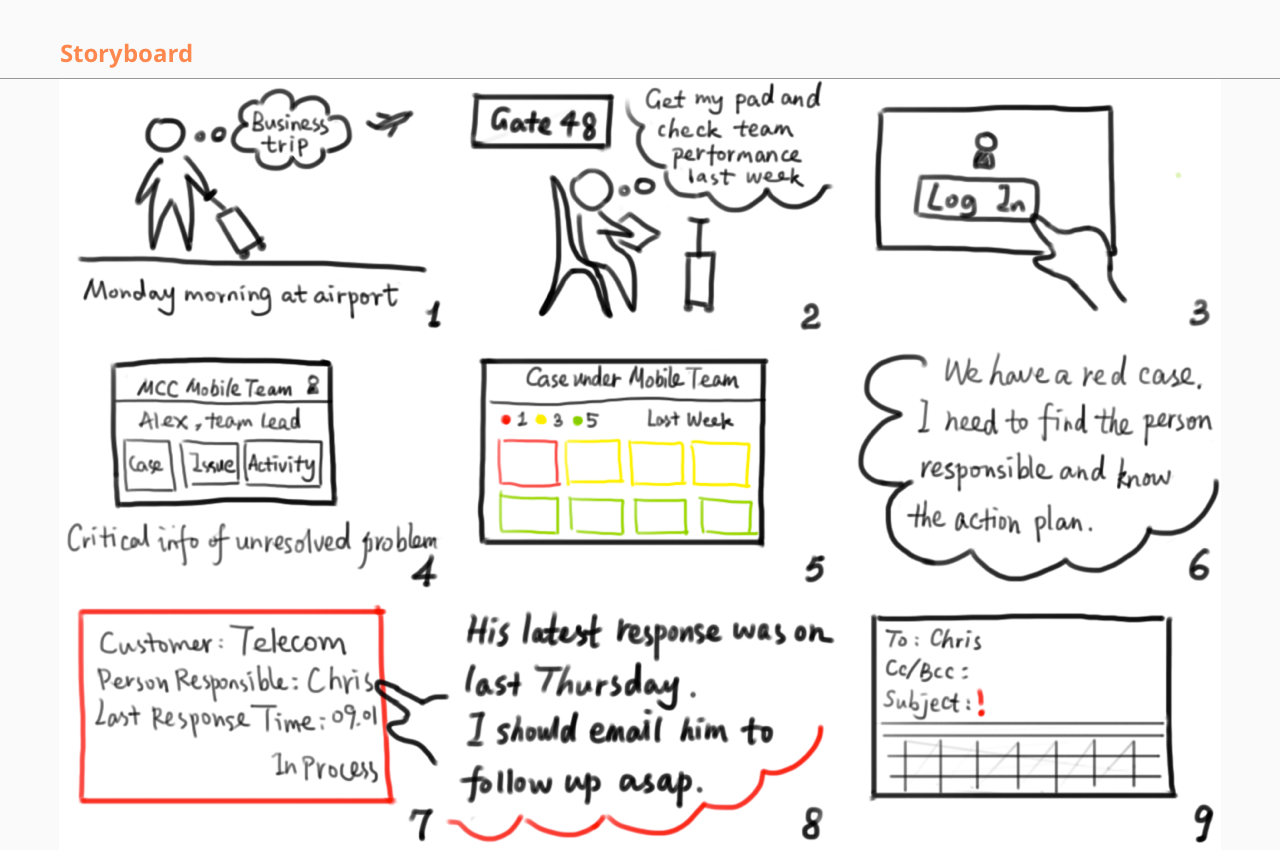 Storyboard
Business
trip
Monday morning at airport
1
Gate 48
Get my pad and
check team
performance
last week
2
Log In
3
MCC Mobile Team
Alex, team lead
Case
Issue
Activity
Critical info of unresolved problem
4
Case under Mobile Team
1 3 5 Last Week
5
We have a red case.
I need to find the person
responsible and know
the action plan.
6
Customer: Telecom
Person Responsible: Chris
Last Response Time: 09.01
In Process
7
His latest response was on
last Thursday.
I should email him to
follow up asap.
8
To: Chris
Cc/Bcc:
Subject: !
9